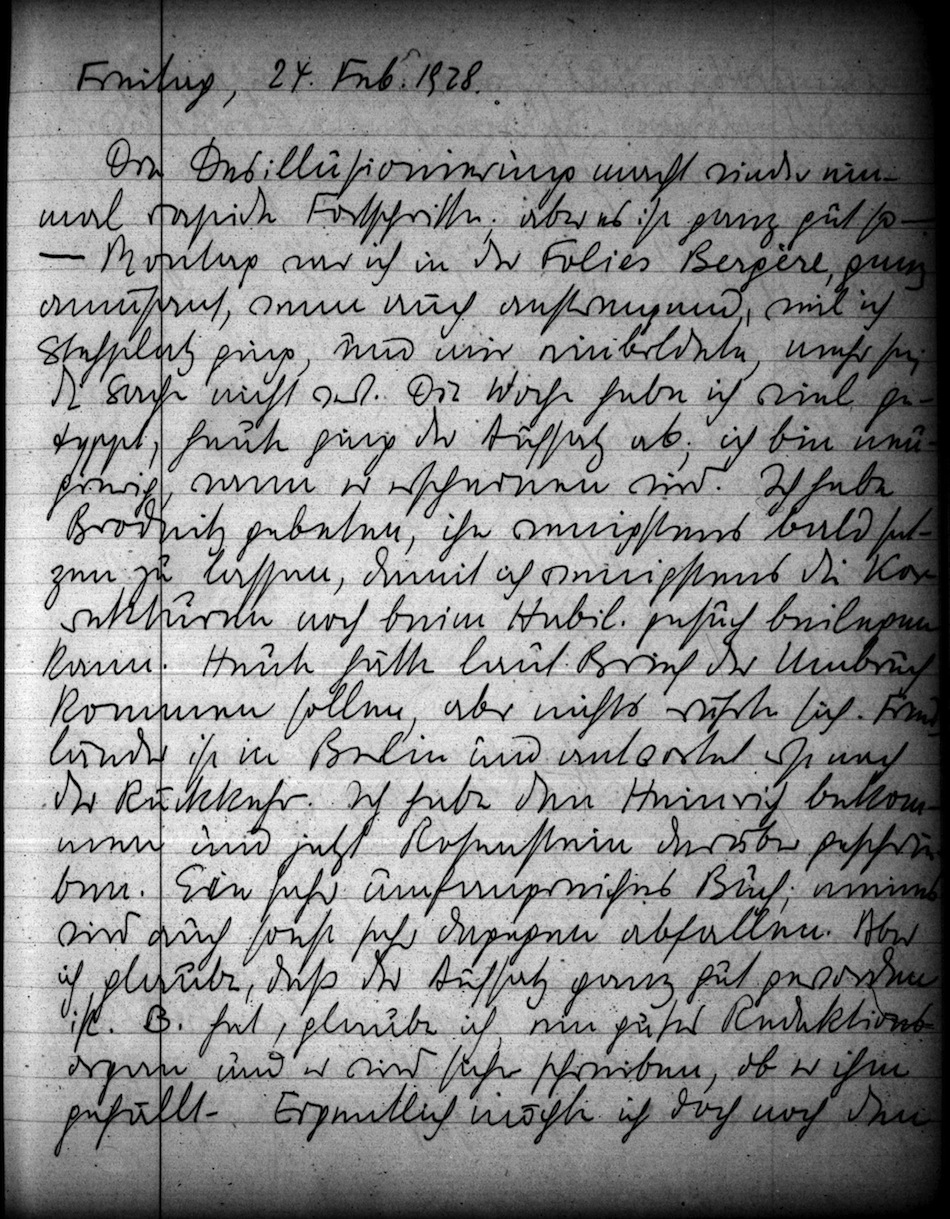 Freitag, 24. Feb. 1928.
Die Desillusionierung macht wieder ein-
mal rapide Fortschritte; aber es ist ganz gut so —
— Montag war ich in der Folies Bergère, ganz
amüsant, wenn auch anstrengend, weil ich
Stehplatz ging, und mir einbildete, mehr sei
d. Sache nicht wert. Die Woche habe ich viel ge-
tippt, heute ging der Aufsatz ab; ich bin neu-
gierig, wann er erscheinen wird. Ich habe
Brodnitz gebeten, ihn wenigstens bald set-
zen zu lassen, damit ich wenigstens die Kor-
rekturen noch beim Habil. gesuch beilegen
kann. Heute hätte laut Brief der Umbruch
kommen sollen, aber nichts rührte sich. Fried-
länder ist in Berlin und antwortet erst nach
der Rückkehr. Ich habe den Heinrich bekom-
men und jetzt Rosenstein darüber geschrie-
ben. Ein sehr umfangreiches Buch; meines
wird auch sonst sehr dagegen abfallen. Aber
ich glaube, daß der Aufsatz ganz gut geworden
ist. B. hat, glaube ich, ein gutes Redaktions-
organ und er wird sicher schreiben, ob er ihm
gefällt- Eigentlich möchte ich doch noch den